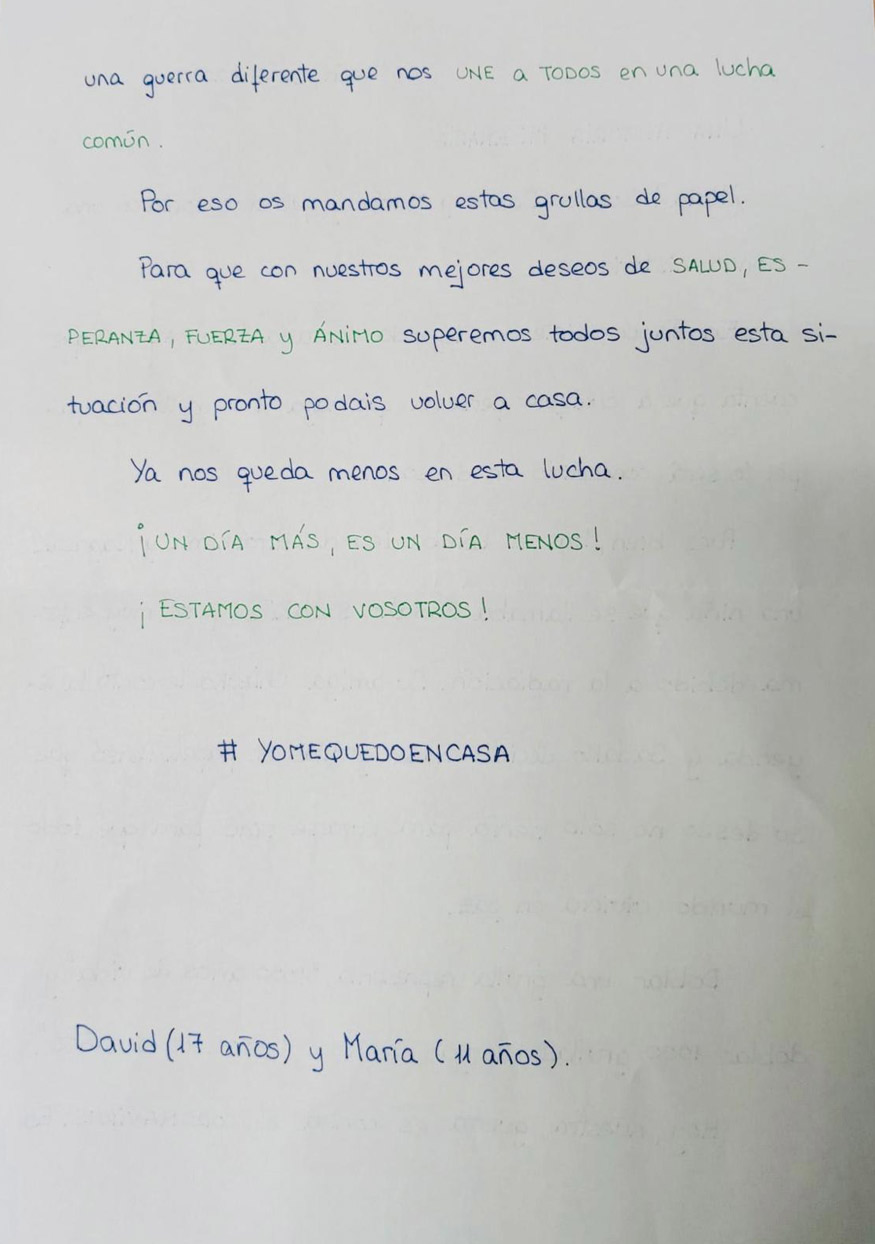 una guerra diferente que nos UNE a TODOS en una lucha
común.
Por eso os mandamos estas grullas de papel.
Para que con nuestros mejores deseos de SALUD, ES-
PERANZA, FUERZA y ÁNIMO superemos todos juntos esta si-
tuación y pronto podais volver a casa.
Ya nos queda menos en esta lucha.
¡UN DÍA MÁS, ES UN DÍA MENOS!
¡ESTAMOS CON VOSOTROS!
# YOMEQUEDOENCASA
David (17 años) y María (11 años).